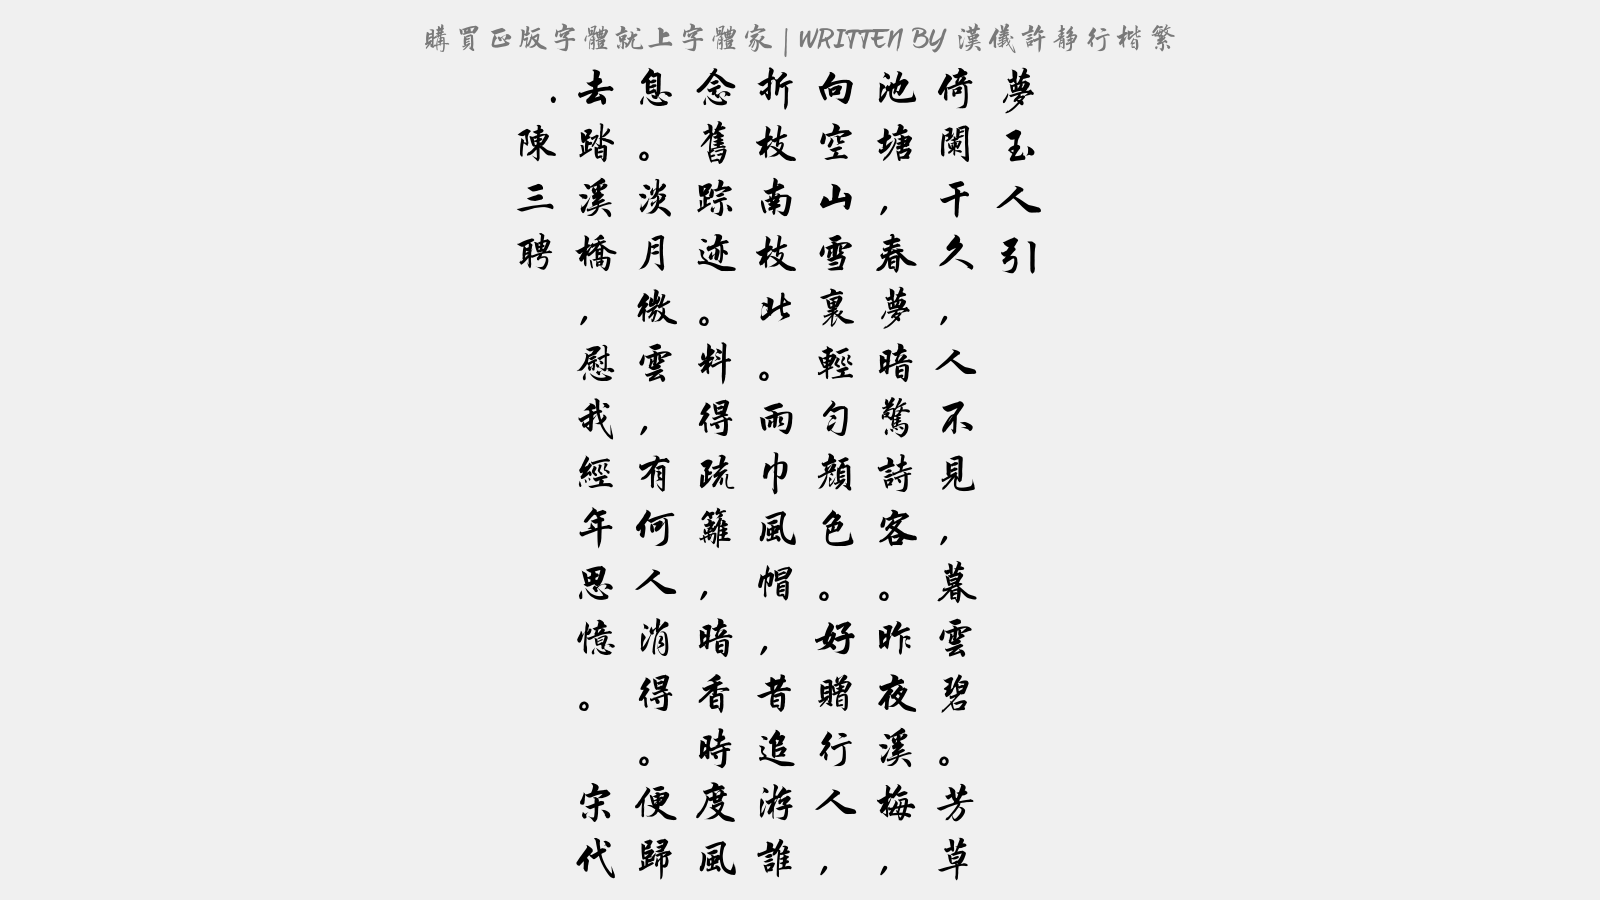 購買正版字體就上字體家 | WRITTEN BY 漢儀許静行楷繁
夢玉人引
倚闌干久，人不見，暮雲碧。芳草
池塘，春夢暗驚詩客。昨夜溪梅，
向空山雪裏輕匀顔色。好贈行人，
折枝南枝北。雨巾風帽，昔追游誰
念舊踪迹。料得疏籬，暗香時度風
息。淡月微雲，有何人消得。便歸
去踏溪橋，慰我經年思憶。宋代
.陳三聘